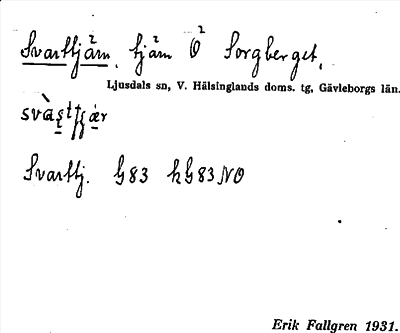 Svarttjärn, tjärn O Sorgberget,
Ljusdals sn, V. Hälsinglands doms. tg, Gävleborgs län.
Svarttj. G83 hG83 NO
Erik Fallgren 1931.